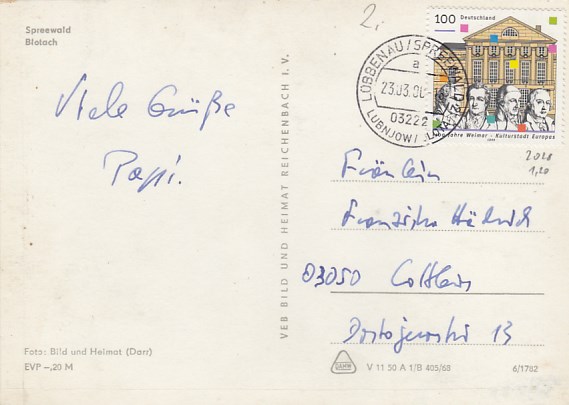 Spreewald
Blotach
Viele Grüße
Papi.
VEB BILD UND HEIMAT REICHENBACH I. V.
Foto: Bild und Heimat (Darr)
EVP –,20 M
2.
100 Deutschland
Jahre Weimar - Kulturstadt Europas
1999
LÜBBENAU/SPREEWALD
a
23.03.00
03222
LUBNJOW/
2020
1,20
Fräulein
Franziska
03050 Cottbus
Dostojewski 13
V 11 50 A 1/B 405/68
6/1782